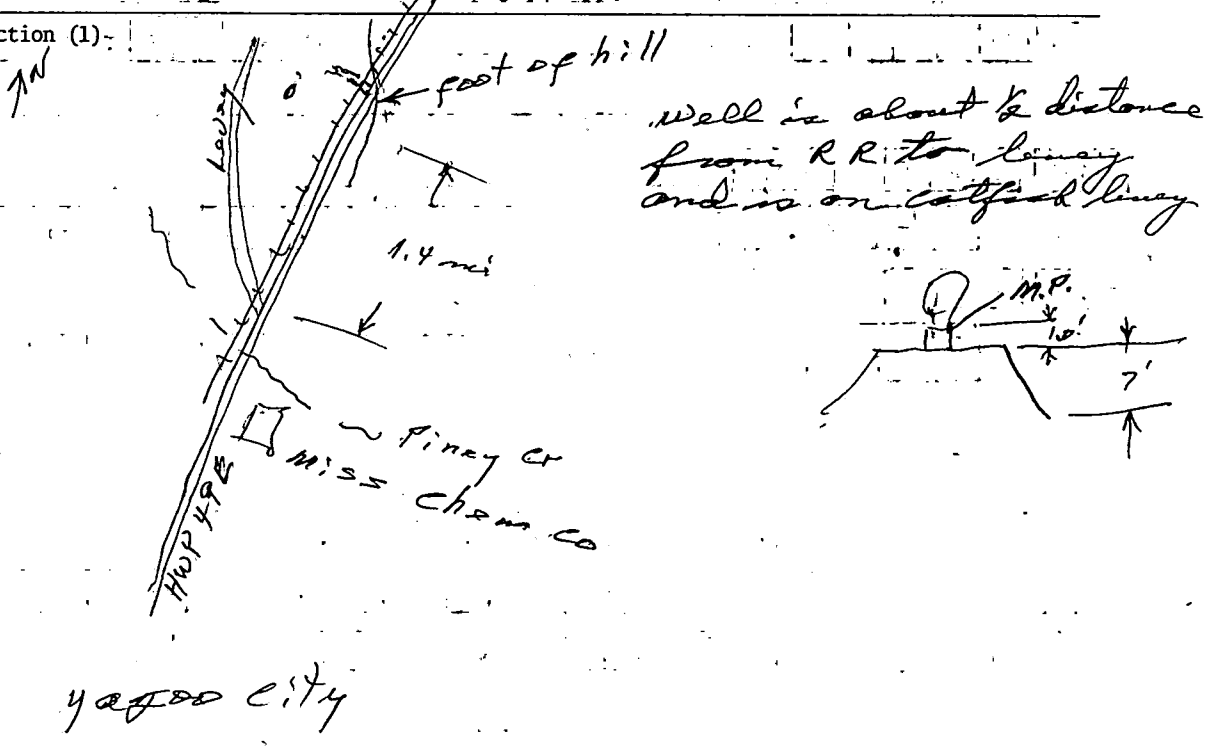 ction (1)
N
foot of hill
Levey
well is about 1/2 distance
from RR to levey
and is on catfish levey
1.4 mi
M.P.
1.0'
7'
Piney Cr
Miss Chem Co
HWY 49E
yazoo city